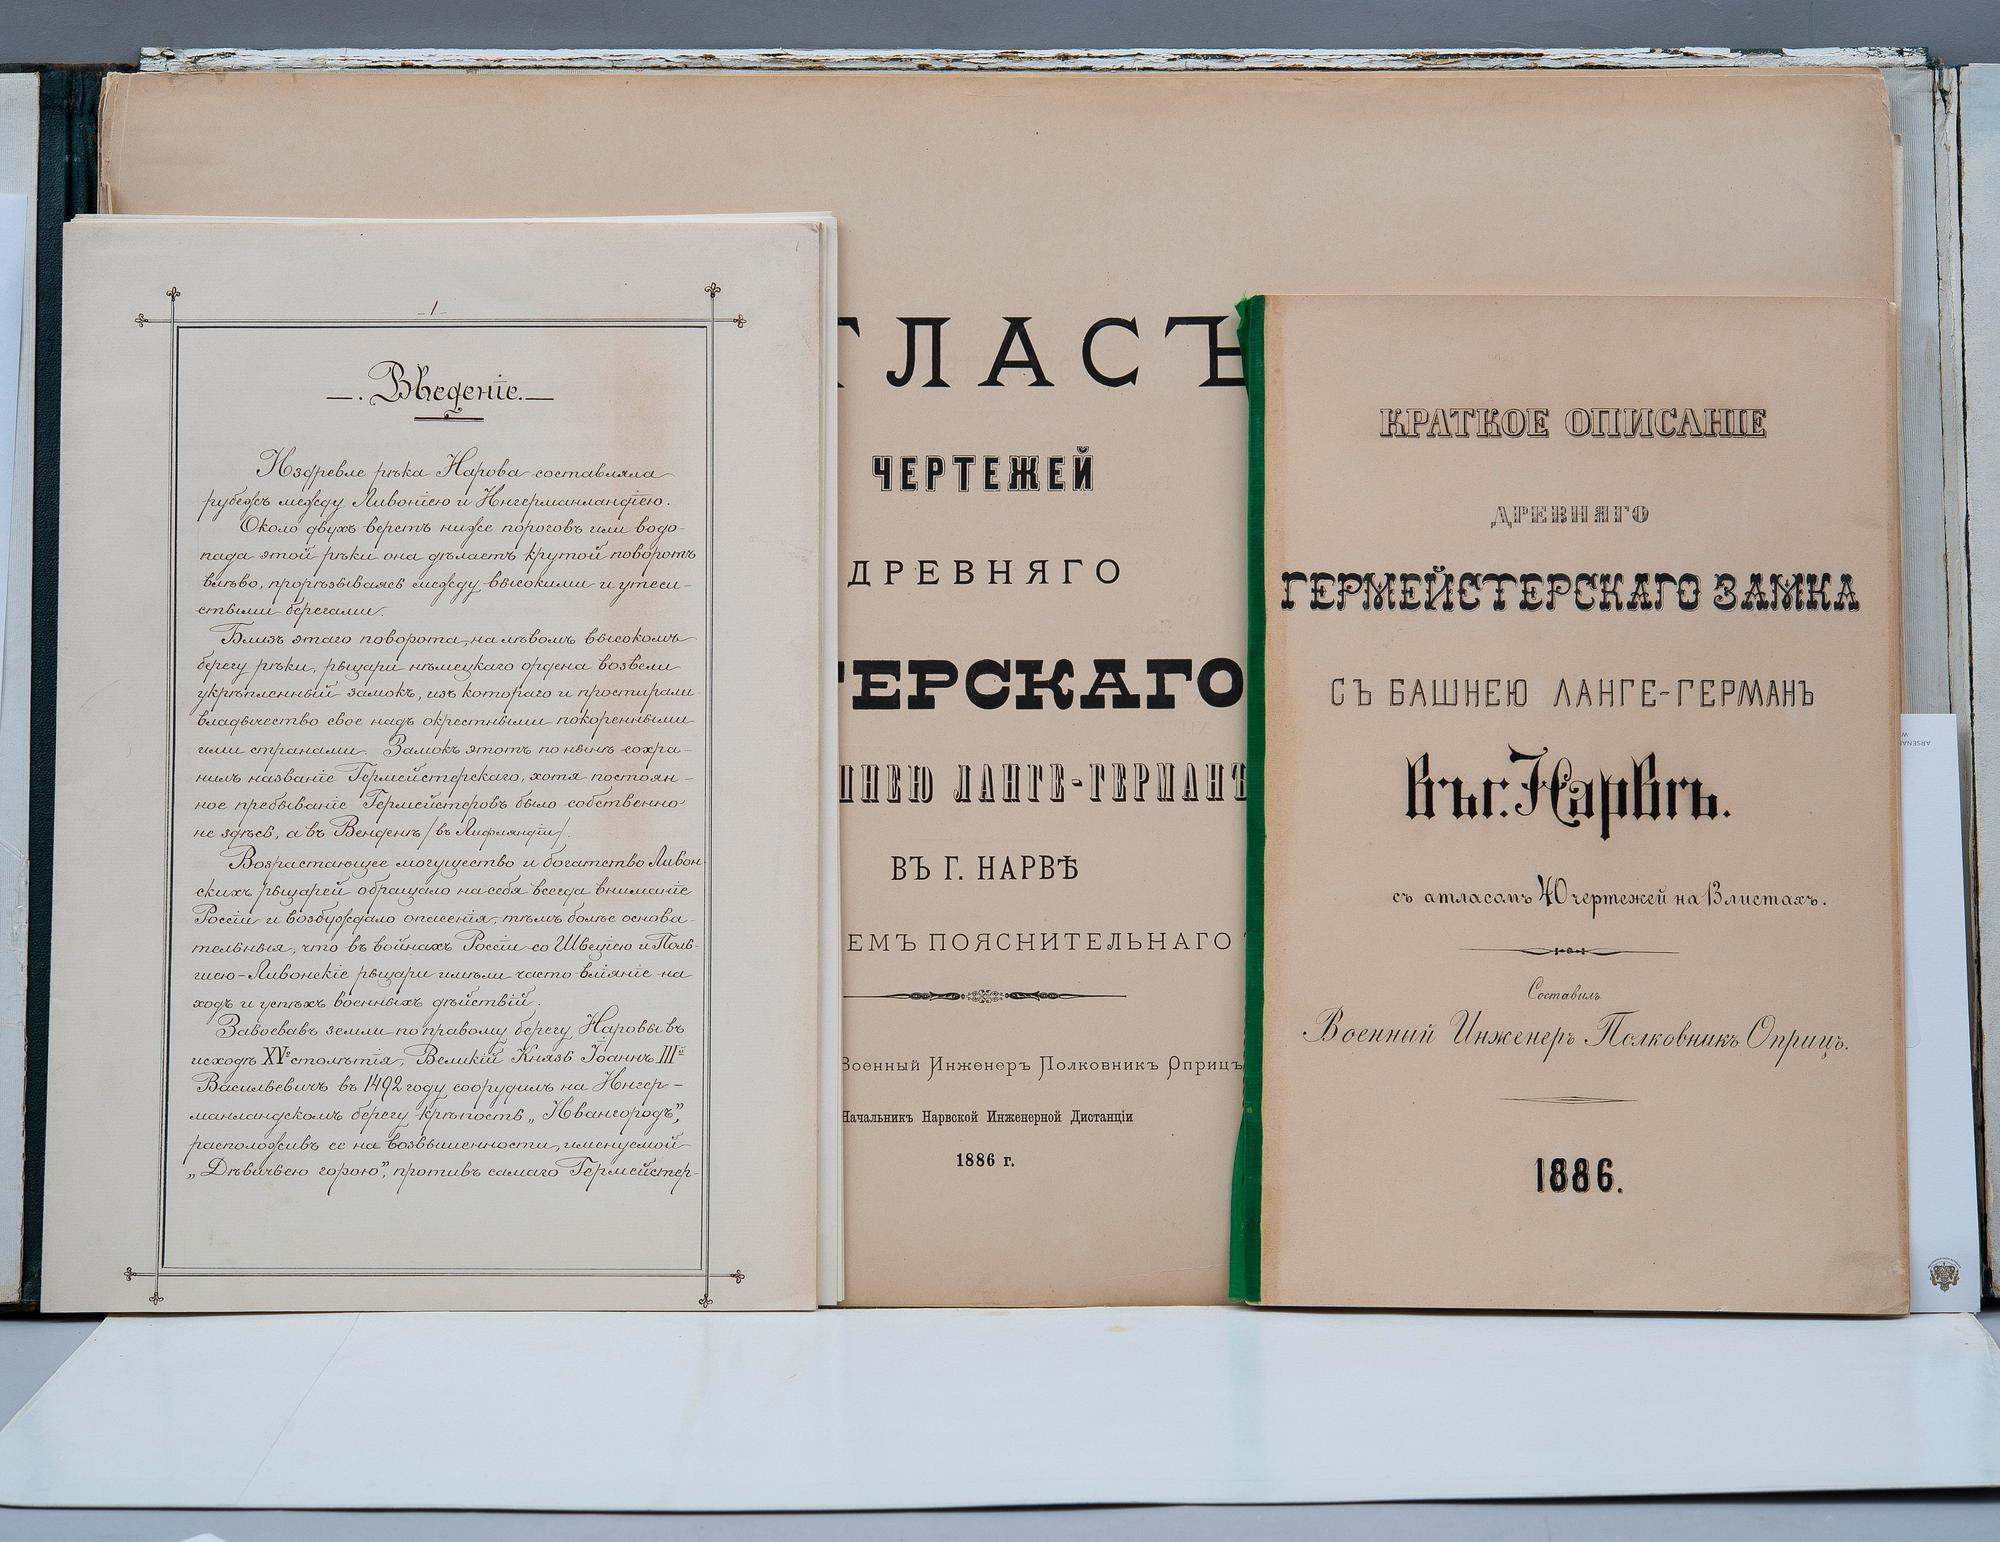 1
- 1 -
Введеніе.
Издревле рѣка Нарова составляла
рубежъ между Ливоніею и Ингерманландіею.
Около двухъ верстъ ниже пороговъ или водо-
пада этой рѣки она дѣлаетъ крутой поворотъ
влѣво, прорѣзываясь между высокими и утеси-
стыми берегами.
Близъ этаго поворота, на лѣвомъ высокомъ
берегу рѣки, рыцари нѣмецкаго ордена возвели
укрѣпленный замокъ, изъ котораго и простирали
владычество свое надъ окрестными покоренными
ими странами. Замокъ этотъ по нынѣ сохра-
нилъ названіе Гермейстерскаго, хотя постоян-
ное пребываніе Гермейстеровъ было собственно
не здѣсь, а въ Венденѣ /въ Лифляндіи/.
Возрастающее могущество и богатство Ливон-
скихъ рыцарей обращало на себя всегда вниманіе
Россіи и возбуждало опасенія, тѣмъ болѣе основа-
тельныя, что въ войнахъ Россіи со Швеціею и Поль-
шею-Ливонскіе рыцари имѣли часто вліяніе на
ходъ и успѣхъ военныхъ дѣйствій.
Завоевавъ земли по правому берегу Наровы въ
исходѣ XVго столѣтія, Великій Князь Іоаннъ IIIй
Васильевичъ въ 1492 году соорудилъ на Ингер-
манландскомъ берегу крѣпость „Ивангородъ”,
расположивъ ее на возвышенности, именуемой
„Дѣвичьею горою”, противъ самаго Гермейстер-
ТЛАСЪ
ЧЕРТЕЖЕЙ
ДРЕВНЯГО
ТЕРСКАГО
ШНЕЮ ЛАНГЕ-ГЕРМАНЪ
ВЪ Г. НАРВѢ
ЕМЪ ПОЯСНИТЕЛЬНАГО
Военный Инженеръ Полковникъ Оприцъ
Начальникъ Нарвской Инженерной Дистанціи
1886 г.
КРАТКОЕ ОПИСАНІЕ
ДРЕВНЯГО
ГЕРМЕЙСТЕРСКАГО ЗАМКА
СЪ БАШНЕЮ ЛАНГЕ-ГЕРМАНЪ
въ г. Нарвѣ.
съ атласомъ 40 чертежей на 13 листахъ.
Составилъ
Военный Инженеръ Полковникъ Оприцъ.
1886.